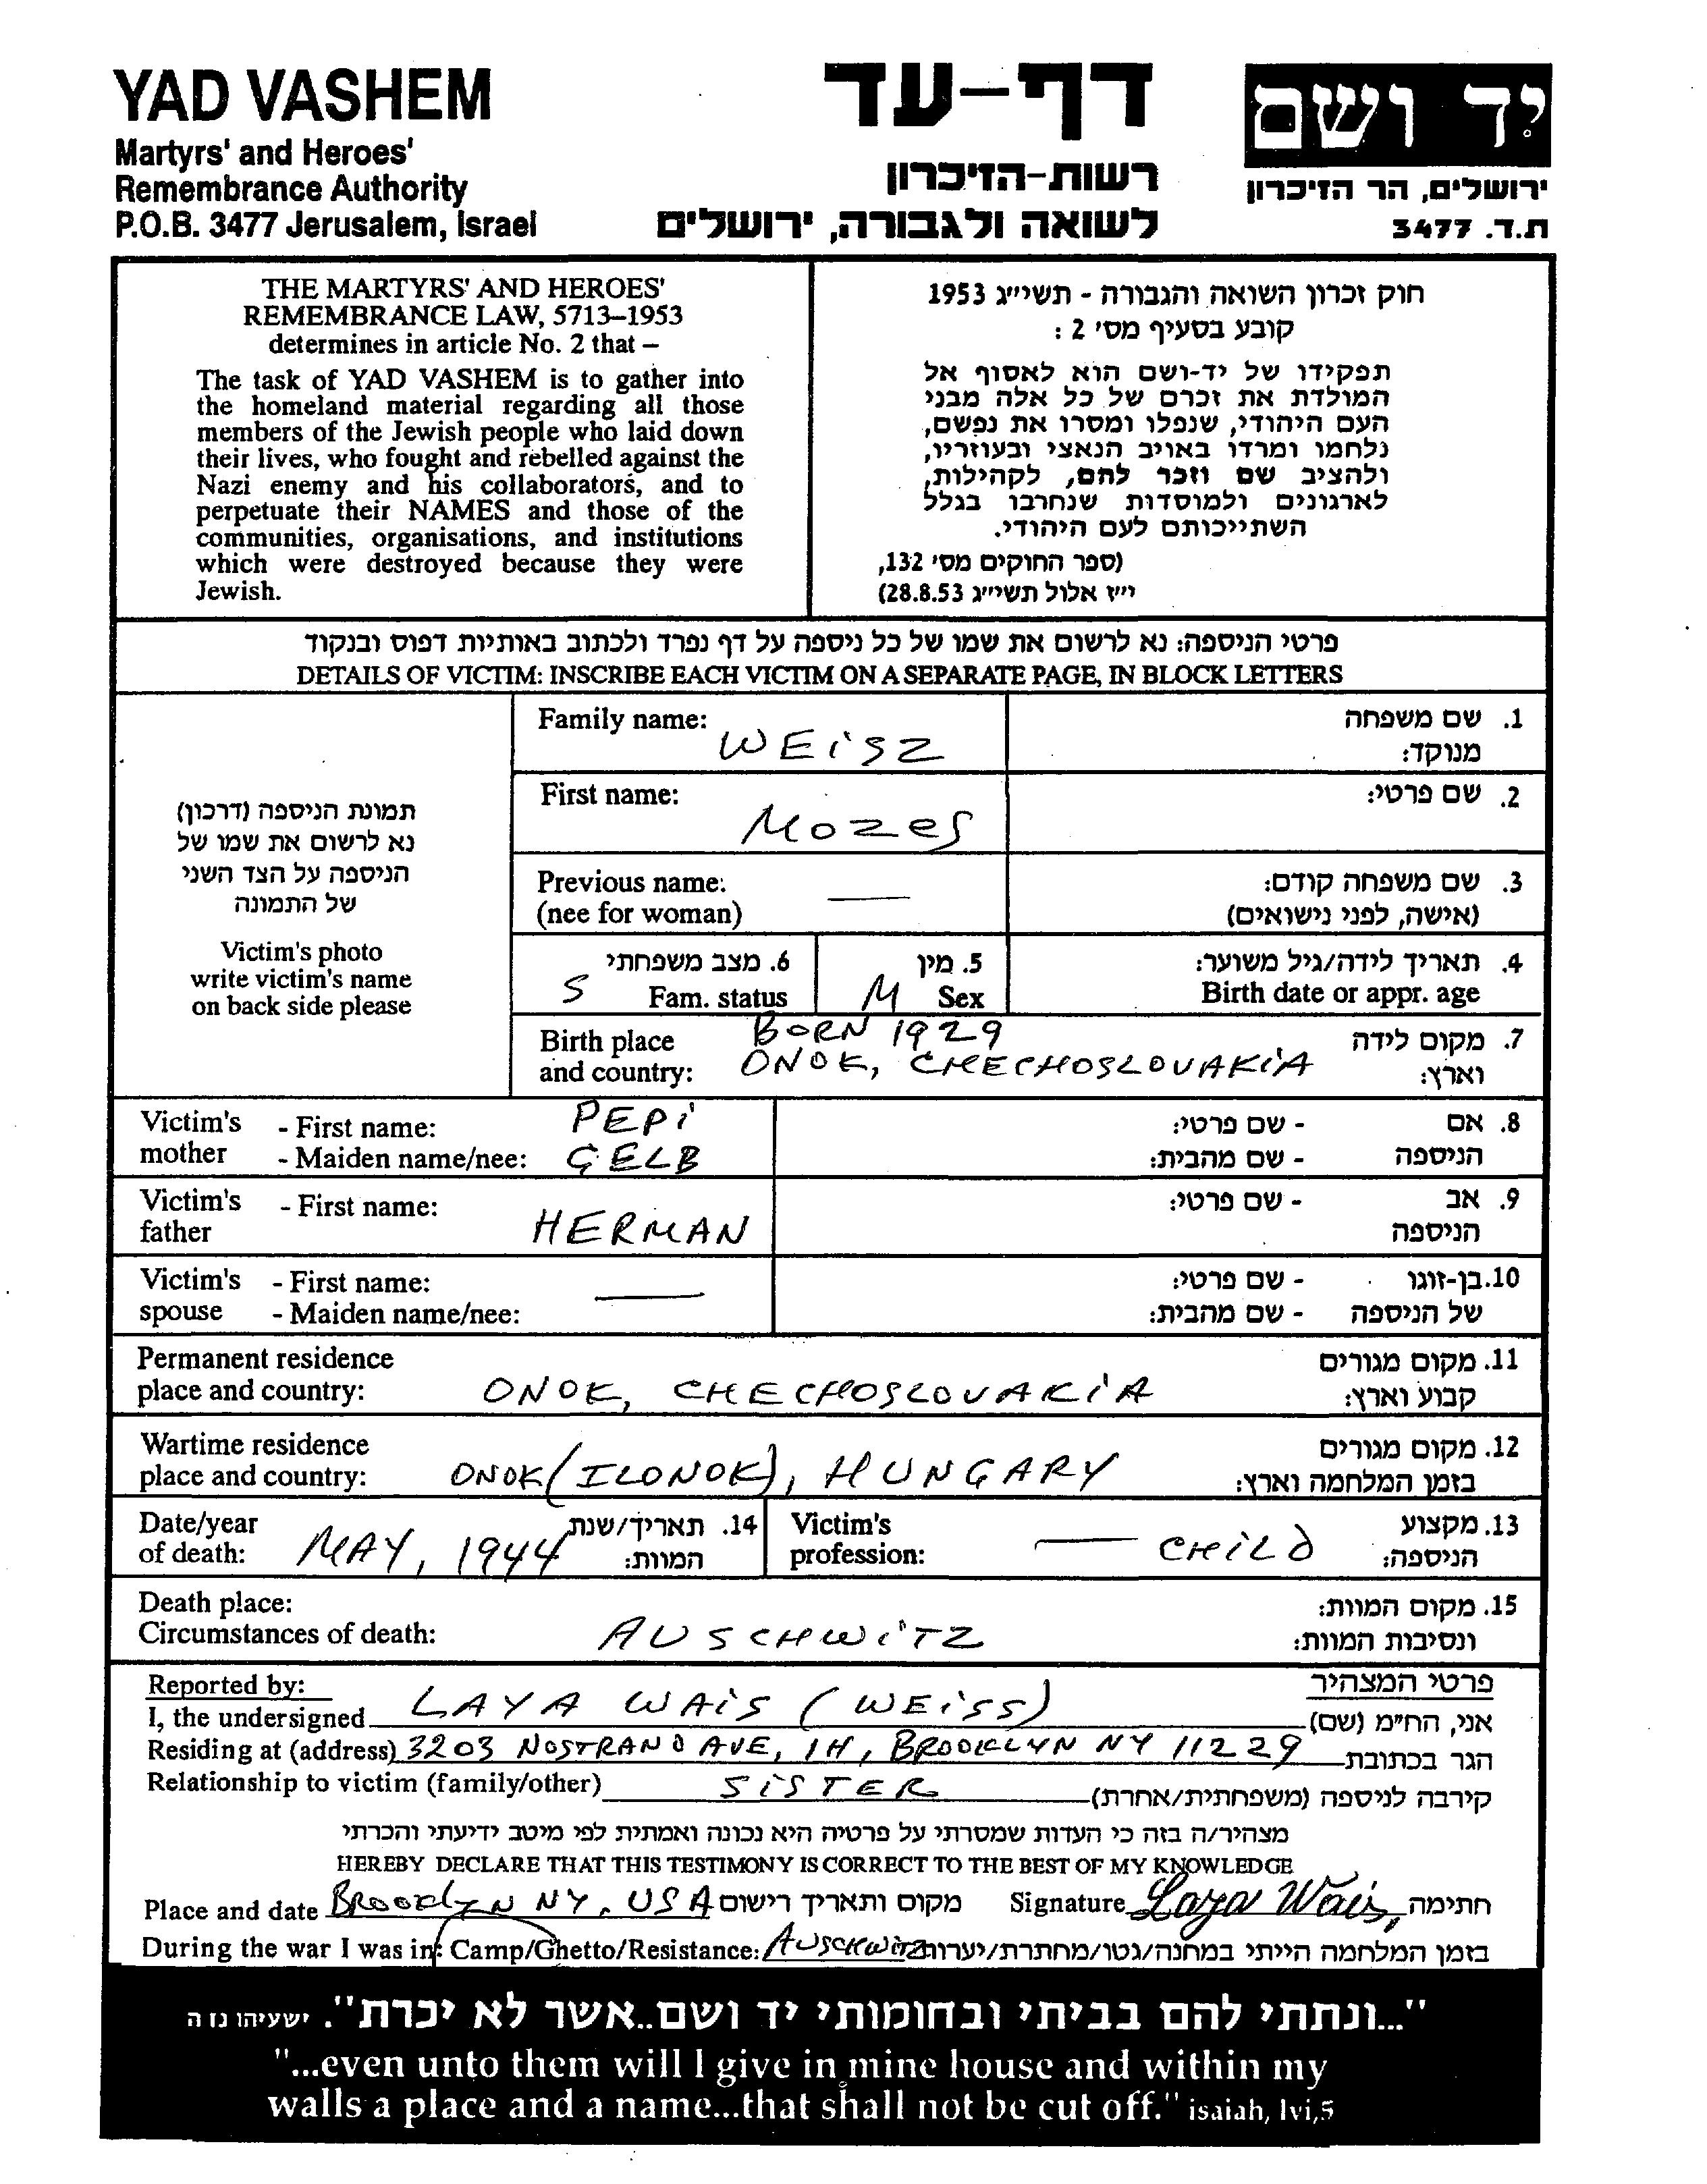 YAD VASHEM
Martyrs' and Heroes'
Remembrance Authority
P.O.B. 3477 Jerusalem, Israel
דף-עד
רשות-הזיכרון
לשואה ולגבורה, ירושלים
יד ושם
ירושלים, הר הזיכרון
ת.ד. 3477
THE MARTYRS' AND HEROES'
REMEMBRANCE LAW, 5713–1953
determines in article No. 2 that –
The task of YAD VASHEM is to gather into
the homeland material regarding all those
members of the Jewish people who laid down
their lives, who fought and rebelled against the
Nazi enemy and his collaborators, and to
perpetuate their NAMES and those of the
communities, organisations, and institutions
which were destroyed because they were
Jewish.
חוק זכרון השואה והגבורה - תשי״ג 1953
קובע בסעיף מס׳ 2 :
תפקידו של יד-ושם הוא לאסוף אל
המולדת את זכרם של כל אלה מבני
העם היהודי, שנפלו ומסרו את נפשם,
נלחמו ומרדו באויב הנאצי ובעוזריו,
ולהציב שם וזכר להם, לקהילות,
לארגונים ולמוסדות שנחרבו בגלל
השתייכותם לעם היהודי.
(ספר החוקים מס׳ 132,
י״ז אלול תשי״ג 28.8.53)
פרטי הניספה: נא לרשום את שמו של כל ניספה על דף נפרד ולכתוב באותיות דפוס ובנקוד
DETAILS OF VICTIM: INSCRIBE EACH VICTIM ON A SEPARATE PAGE, IN BLOCK LETTERS
תמונת הניספה (דרכון)
נא לרשום את שמו של
הניספה על הצד השני
של התמונה
Victim's photo
write victim's name
on back side please
Family name: WEiSZ 1. שם משפחה
מנוקד:
First name: Mozes 2. שם פרטי:
Previous name: — 3. שם משפחה קודם:
(nee for woman) (אישה, לפני נישואים)
6. מצב משפחתי 5. מין 4. תאריך לידה/גיל משוער:
S Fam. status M Sex Birth date or appr. age
Birth place BORN 1929 7. מקום לידה
and country: ONOK, CHECHOSLOVAKiA וארץ:
Victim's - First name: PEPi - שם פרטי: 8. אם
mother - Maiden name/nee: GELB - שם מהבית: הניספה
Victim's - First name: HERMAN - שם פרטי: 9. אב
father הניספה
Victim's - First name: — - שם פרטי: 10. בן-זוגו
spouse - Maiden name/nee: - שם מהבית: של הניספה
Permanent residence 11. מקום מגורים
place and country: ONOK, CHECHOSLOVAKiA קבוע וארץ:
Wartime residence 12. מקום מגורים
place and country: ONOK (ILONOK), HUNGARY בזמן המלחמה וארץ:
Date/year 14. תאריך/שנת Victim's 13. מקצוע
of death: MAY, 1944 המוות: profession: — CHiLD הניספה:
Death place: 15. מקום המוות:
Circumstances of death: AUSCHWiTZ ונסיבות המוות:
Reported by: פרטי המצהיר
I, the undersigned LAYA WAiS (WEiSS) אני, הח״מ (שם)
Residing at (address) 3203 NOSTRAND AVE, 1H, BROOKLYN NY 11229 הגר בכתובת
Relationship to victim (family/other) SiSTER קירבה לניספה (משפחתית/אחרת)
מצהיר/ה בזה כי העדות שמסרתי על פרטיה היא נכונה ואמתית לפי מיטב ידיעתי והכרתי
HEREBY DECLARE THAT THIS TESTIMONY IS CORRECT TO THE BEST OF MY KNOWLEDGE
Place and date Brooklyn NY, USA מקום ותאריך רישום Signature Laya Wais, חתימה
During the war I was in: Camp/Ghetto/Resistance: Auschwitz בזמן המלחמה הייתי במחנה/גטו/מחתרת/יערות
"...ונתתי להם בביתי ובחומותי יד ושם..אשר לא יכרת". ישעיהו נז ה
"...even unto them will I give in mine house and within my
walls a place and a name...that shall not be cut off." isaiah, lvi,5